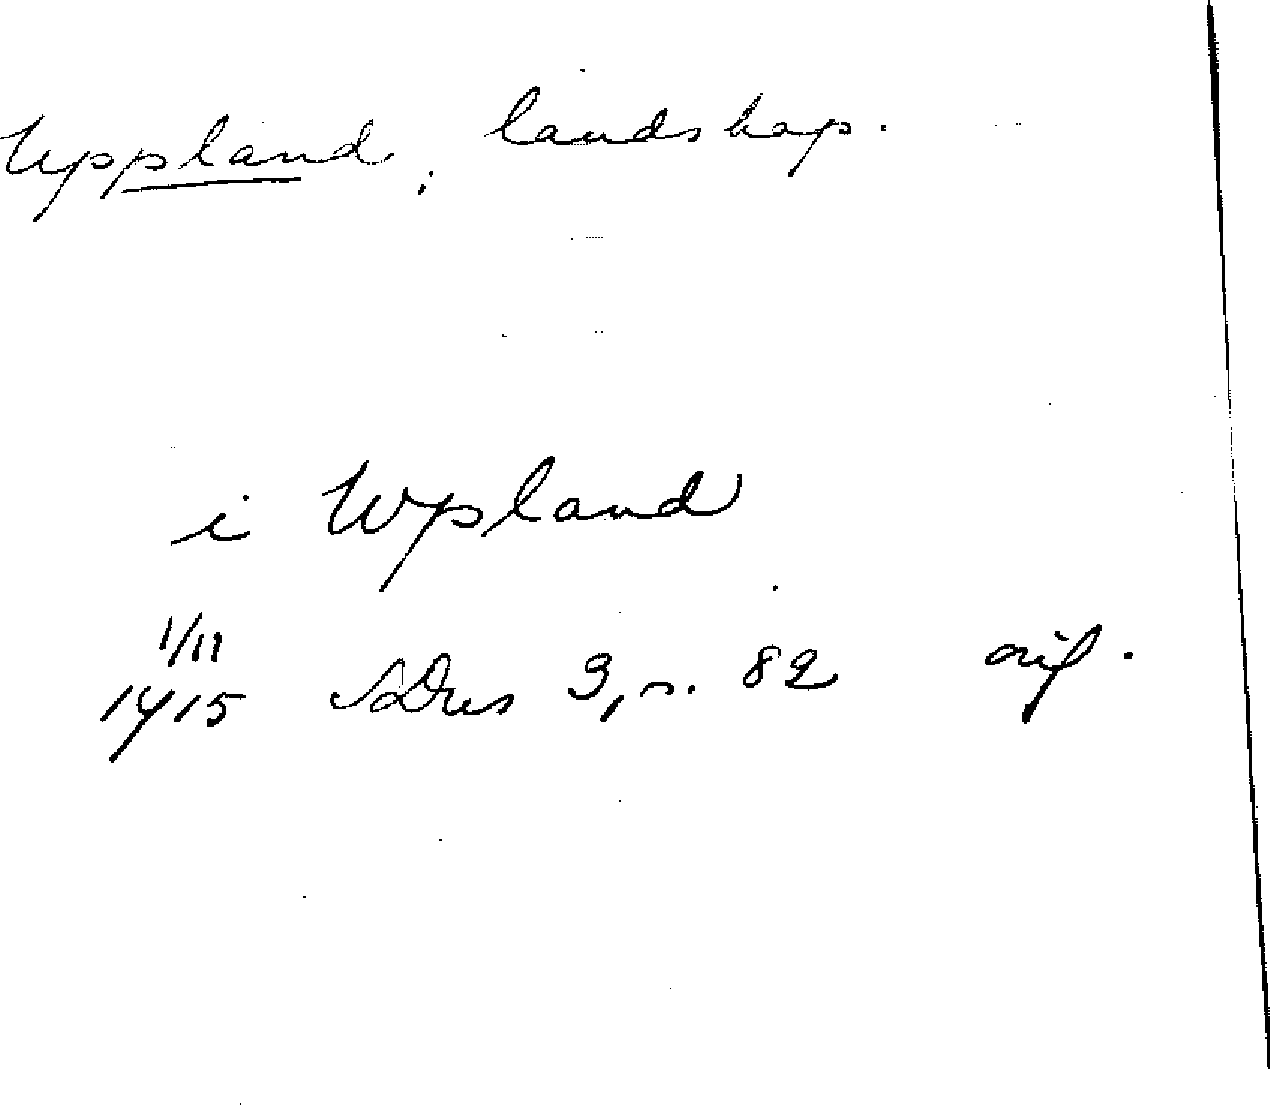 Uppland, landskap.
i Wpland
1/11
1415 SDns 3, s. 82 orig.